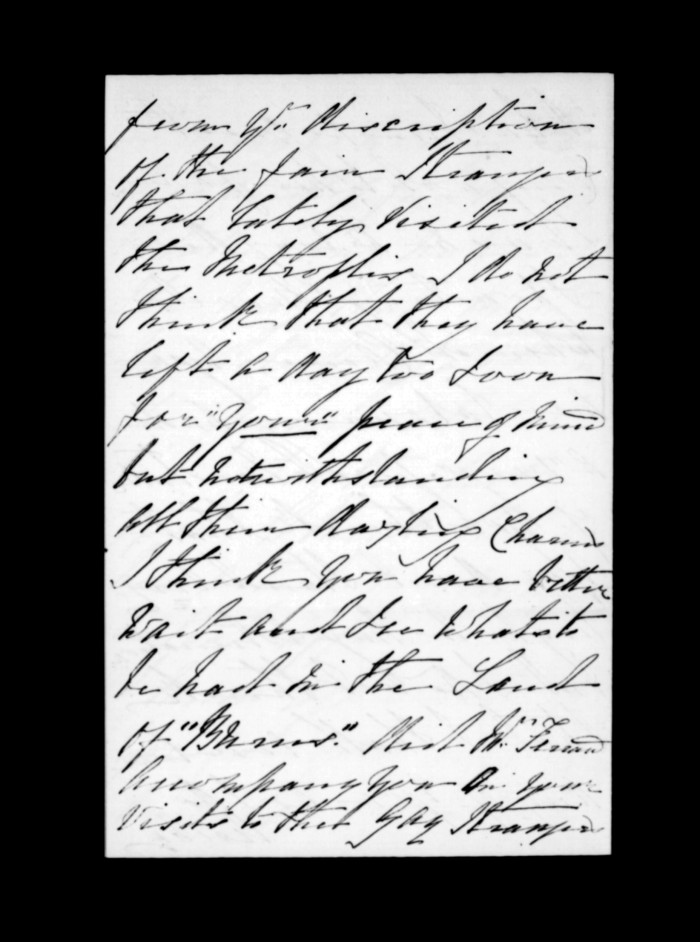 from yr. discription
of the fair Stranger
that lately visited
the Metroplis I do not
think that they have
left a day too soon
for "your" peace of mind
but notwithstanding
all their dazling Charms
I think you have better
wait and see whats to
be had in the Land
of "Burns." did Mr.
accompany you on your
visits to the Gay Stranger